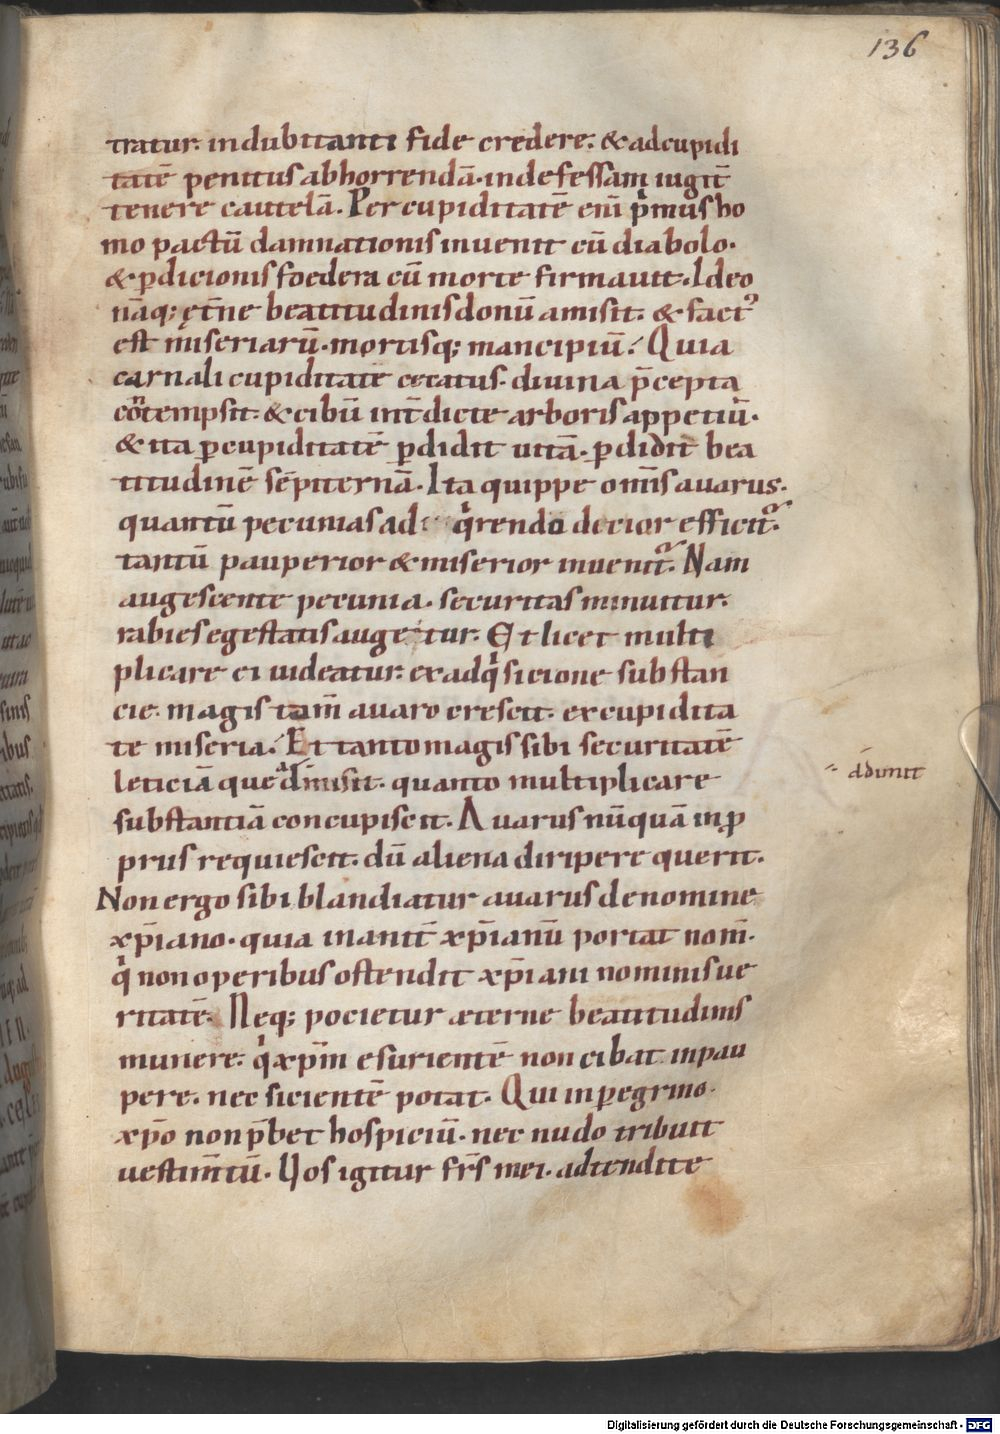 136
tratur. indubitanti fide credere. & adcupidi
tatē penitus abhorrendā. indefessam iugit̄
tenere cautelā. Per cupiditatē enī pͥmus ho
mo pactū damnationis inuenit cū diabolo.
& ꝑdicionis foedera cū morte firmauit. Ideo
nāq; ęt̄ne beatitudinis donū amisit. & factꝰ
est miseriarū. mortisq; mancipiū. Quia
carnali cupiditate cecatus. diuina p̄cepta
cōtempsit. & cibū int̄dicte arboris appetiuͥ.
& ita ꝑ cupiditatē ꝑdidit uitā. ꝑdidit bea
titudinē sēpiternā. Ita quippe om̄is auarus.
quantū pecunias ad qͥrendo decior efficit᷑.
tantū pauperior & miserior inuenit᷑. Nam
augescente pecunia. securitas minuitur.
rabies egestatis augetur. Et licet multi
plicare ei uideatur. ex adqͥsicione substan
cie. magis tam̄ auaro crescit. ex cupidita
te miseria. Et tanto magis sibi securitatē
leticiā que
quanto multiplicare
adimit
substantiā concupiscit. Auarus nūquā in ꝓ
prus requiescit. dū aliena diripere querit.
Non ergo sibi blandiatur auarus de nomine
xp̄iano. quia inanit̄ xp̄ianū portat nom̄.
qͥ non operibus ostendit xp̄iani nominis ue
ritatē. Neq; pocietur æterne beatitudinis
munere. qͥ xp̄m esurientē non cibat in pau
pere. nec sicientē potat. Qui in peregrino
xp̄o non p̄bet hospiciū. nec nudo tribuit
uestim̄tū. Uos igitur fr̄s mei. adtendite
Digitalisierung gefördert durch die Deutsche Forschungsgemeinschaft - DFG